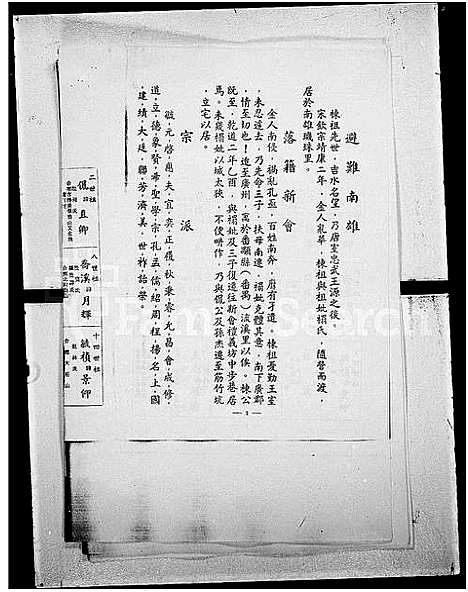 避難南雄
棟祖先世，吉水名望，乃唐忠武王源之後。
宋欽宗靖康二年，金人亂華，棟祖與祖妣禤氏，隨晉南渡，
居於南雄璣珠里。
落籍新會
金人南侵，禍亂孔亟，百姓南奔，靡有孑遺。棟祖憂勤王室
，未忍遠去，乃先命三子，扶母南遷，禤妣克體其意，南下廣郡
，情至切也！迨至廣州，寓於番顒縣（番禺）浤溪里以俟。棟公
既至，乾道二年乙酉，與禤妣及三子復遠往新會禮義坊中步巷居
焉。未幾禤妣以城太狹，不便畊作，乃與儀公及孫杰遷至筋竹坑
，立宅以居。
宗派
啟，元，啓，周，夫，宜，奕，正，復，秋，秉，睿，允，昌，會，成，修，
道，立，德，象，賢，希，聖，學，宗，孔，孟，儒，紹，周，程，揚，名，上，國
，建，績，大，廷，聯，芳，濟，美，世，祚，詒，榮。
— 1 —
二世祖
儀
直卿
八世祖
喬溪
月輝
十四世祖
毓楨
景卿